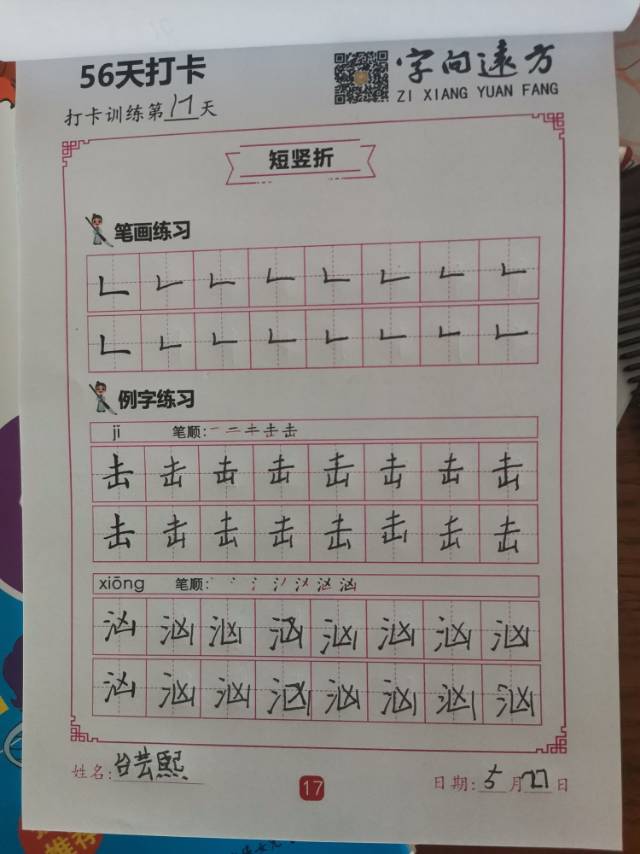 56天打卡
字向遠方
ZI XIANG YUAN FANG
打卡训练第17天
短竖折
笔画练习
𠃊 𠃊 𠃊 𠃊 𠃊 𠃊 𠃊 𠃊
𠃊 𠃊 𠃊 𠃊 𠃊 𠃊 𠃊 𠃊
例字练习
jī 笔顺:一 二 キ 击 击
击 击 击 击 击 击 击 击
击 击 击 击 击 击 击 击
xiōng 笔顺:
汹 汹 汹 汹 汹 汹 汹 汹
汹 汹 汹 汹 汹 汹 汹 汹
姓名:台芸熙
17
日期:5月27日
推荐